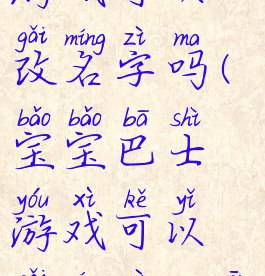 gǎi míng zì ma
改名字吗(
bǎo bǎo bā shì
宝宝巴士
yóu xì kě yǐ
游戏可以